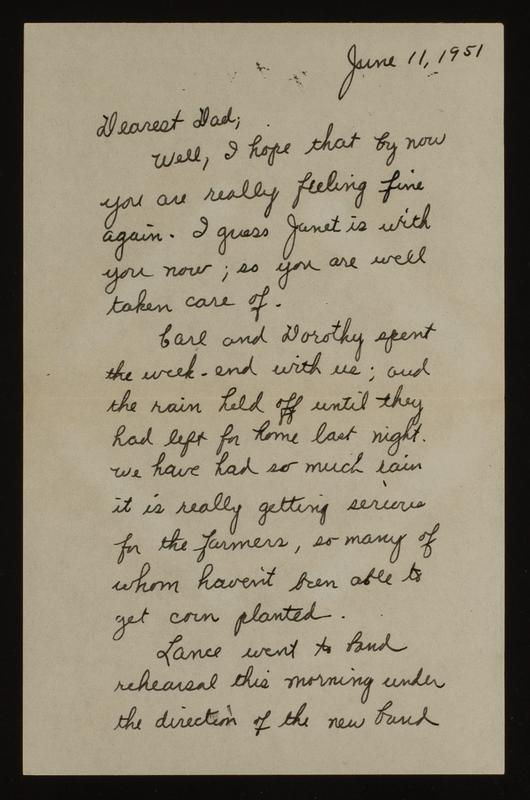 June 11, 1951
Dearest Dad;
Well, I hope that by now
you are really feeling fine
again. I guess Janet is with
you now; so you are well
taken care of.
Carl and Dorothy spent
the week-end with us; and
the rain held off until they
had left for home last night.
We have had so much rain
it is really getting serious
for the farmers, so many of
whom haven't been able to
get corn planted.
Lance went to band
rehearsal this morning under
the direction of the new band